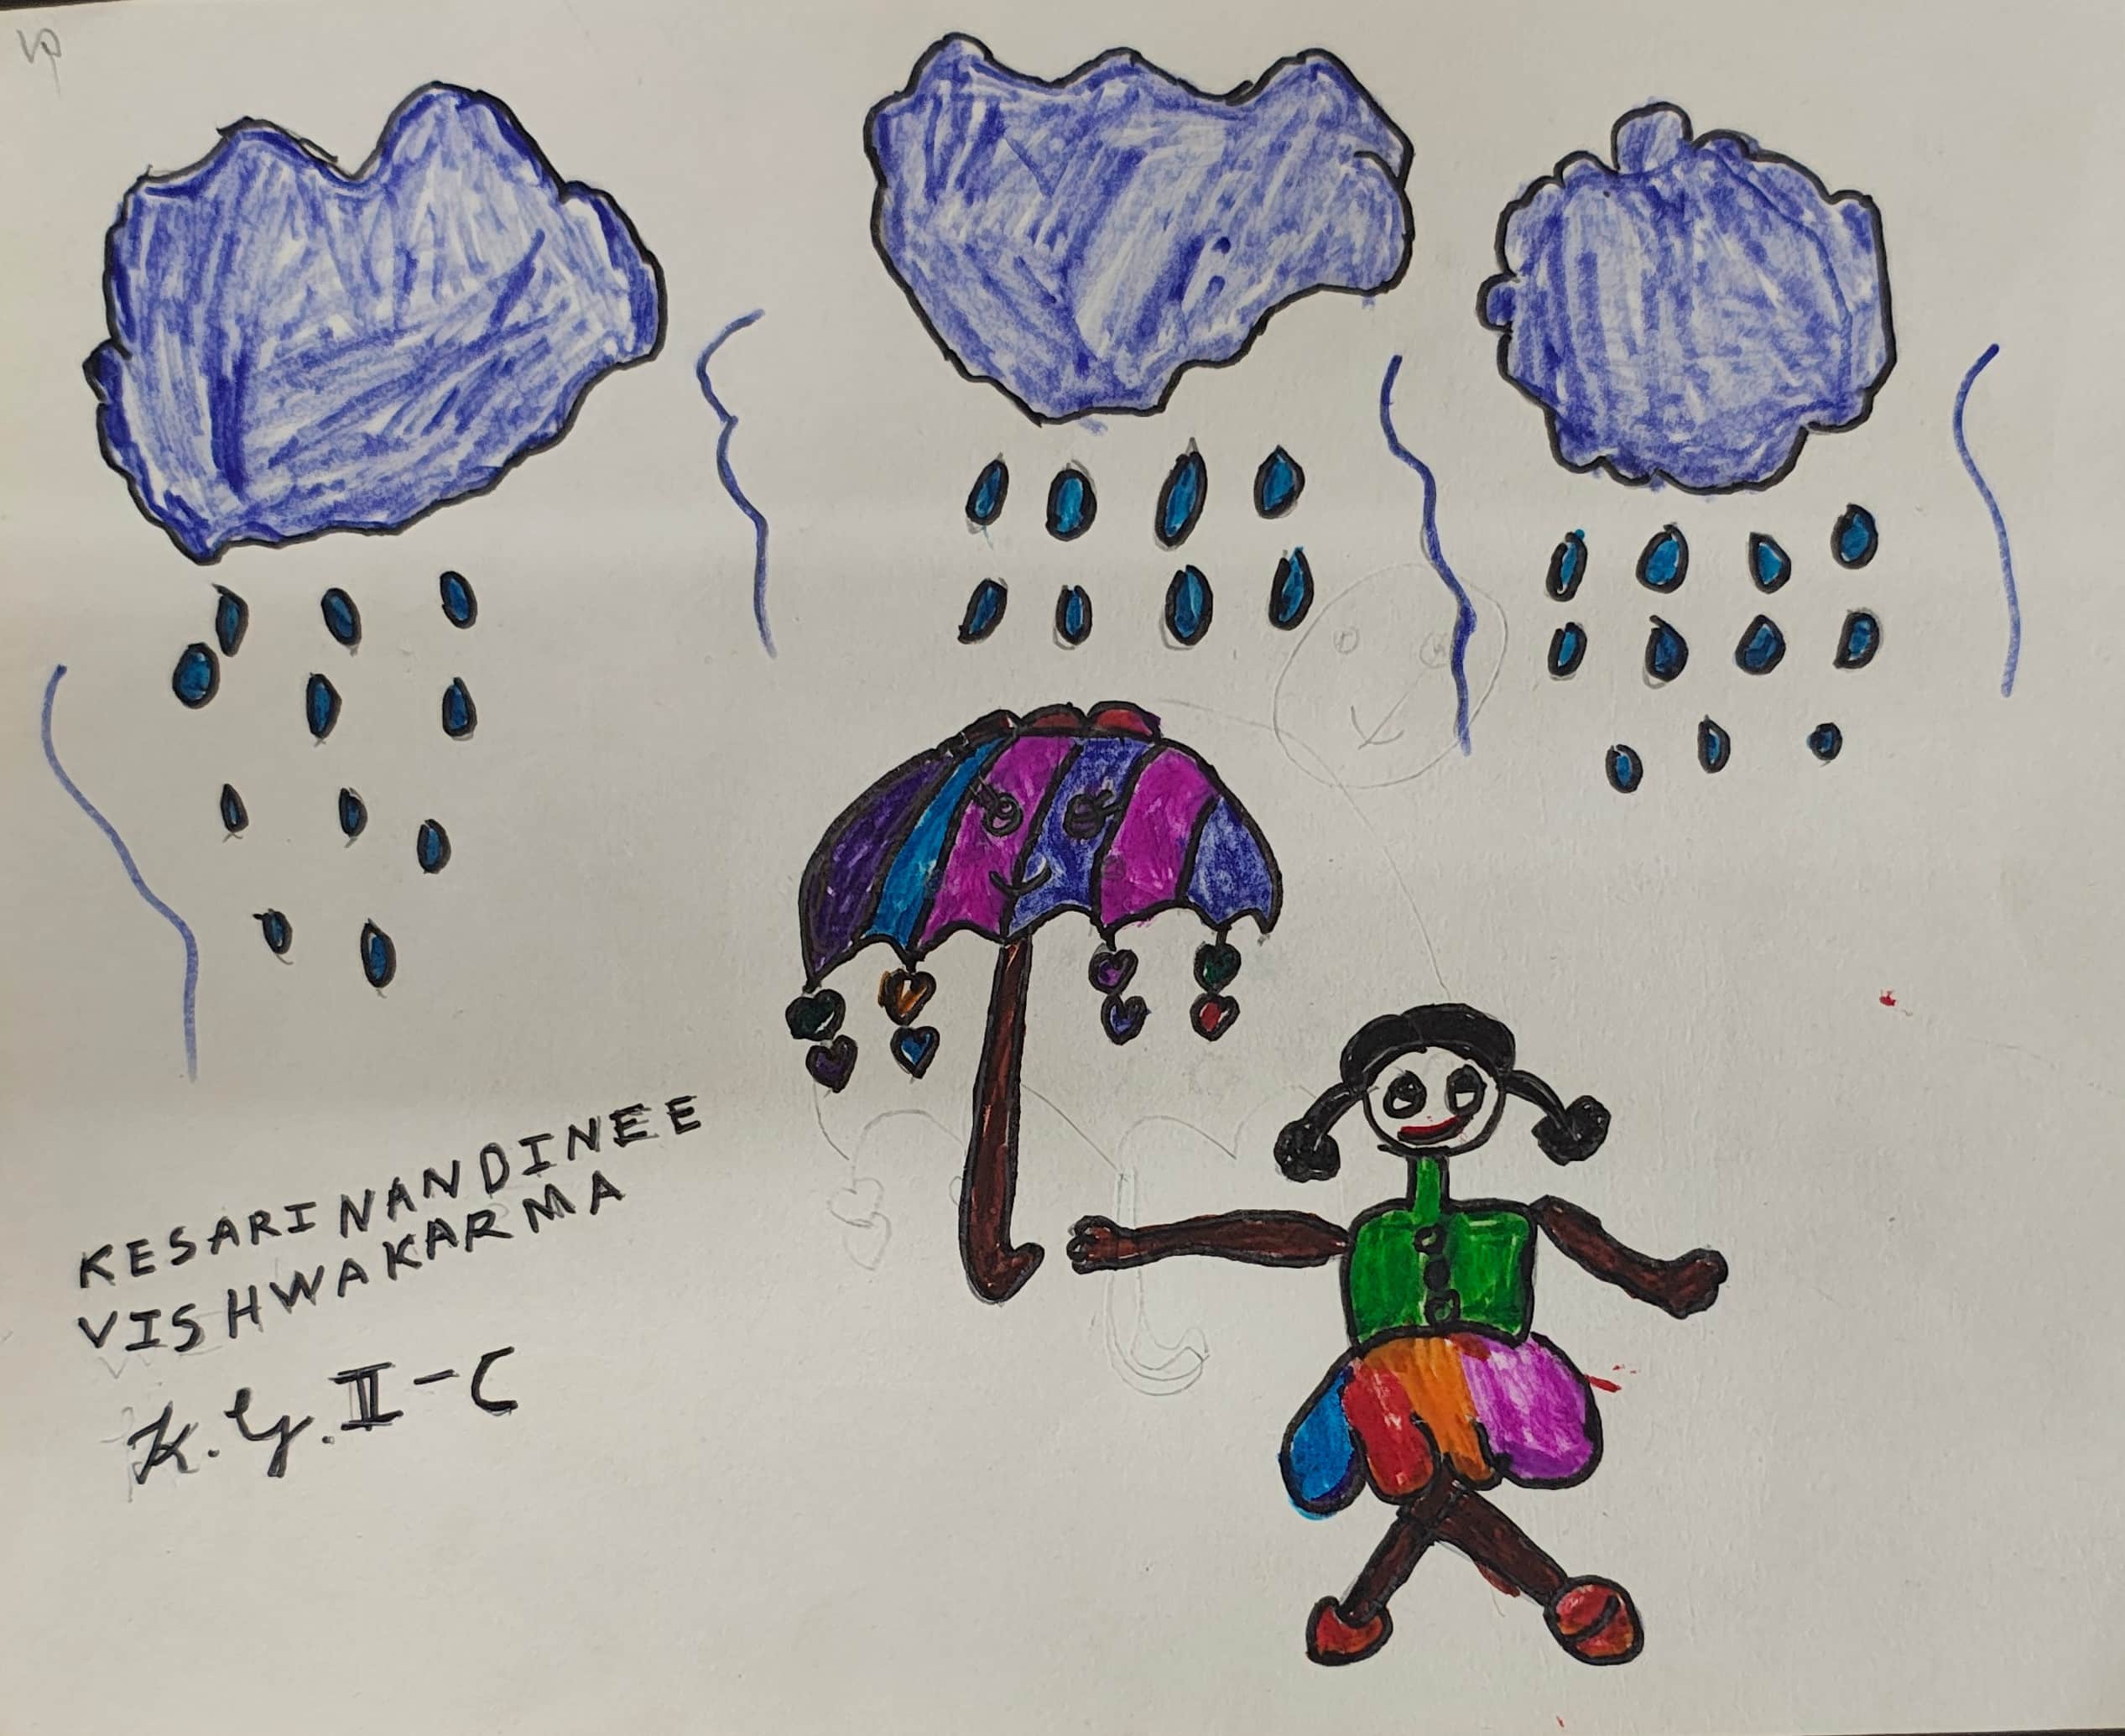 KESARINANDINEE
VISHWAKARMA
K.G.II-C